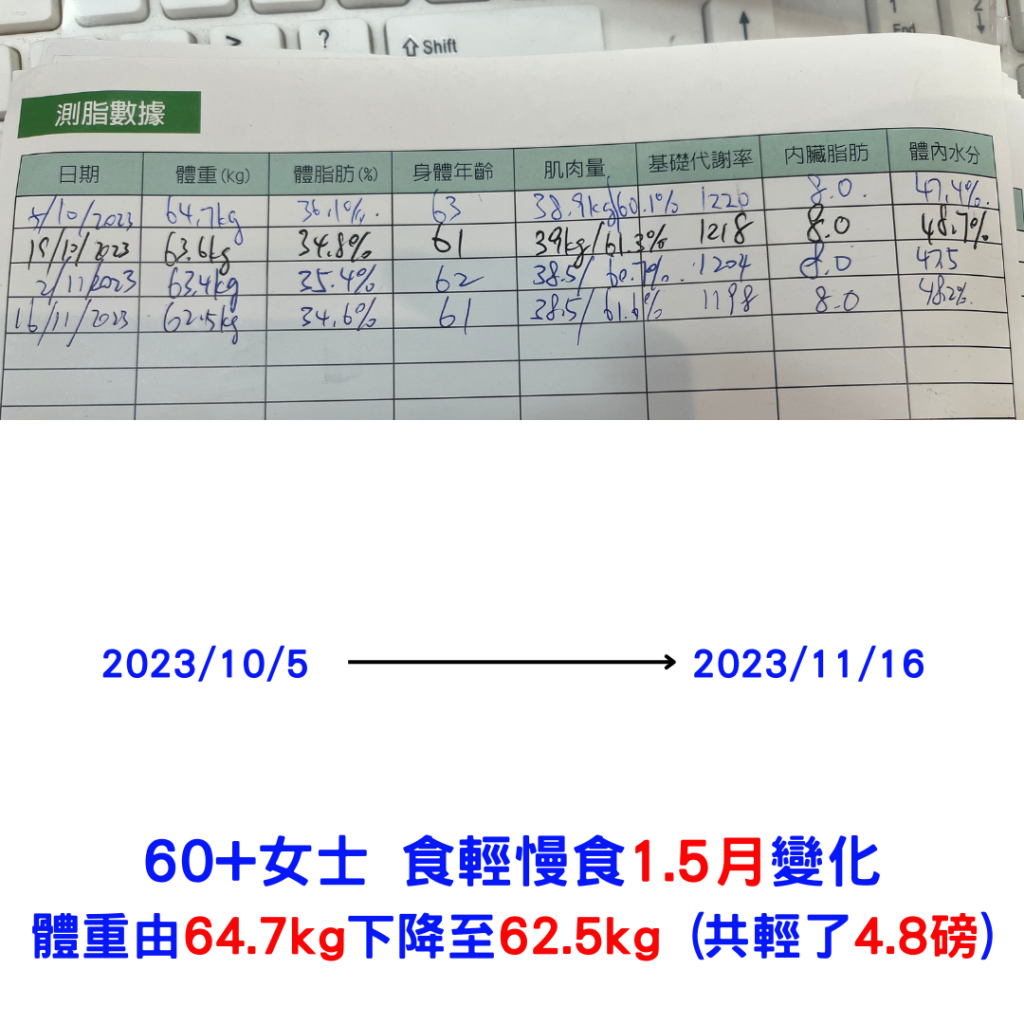 ?
⇧ Shift
1
End
2
測脂數據
日期 體重(kg) 體脂肪(%) 身體年齡 肌肉量 基礎代謝率 內臟脂肪 體內水分
5/10/2023 64.7kg 36.1%. 63 38.9kg/60.1% 1220 8.0. 47.4%.
19/10/2023 63.6kg 34.8% 61 39kg/61.3% 1218 8.0 48.7%
2/11/2023 63.4kg 35.4% 62 38.5/ 60.7%. 1204 8.0 47.5
16/11/2023 62.5kg 34.6% 61 38.5/ 61.6% 1198 8.0 48.2%.
2023/10/5 2023/11/16
60+女士 食輕慢食1.5月變化
體重由64.7kg下降至62.5kg (共輕了4.8磅)